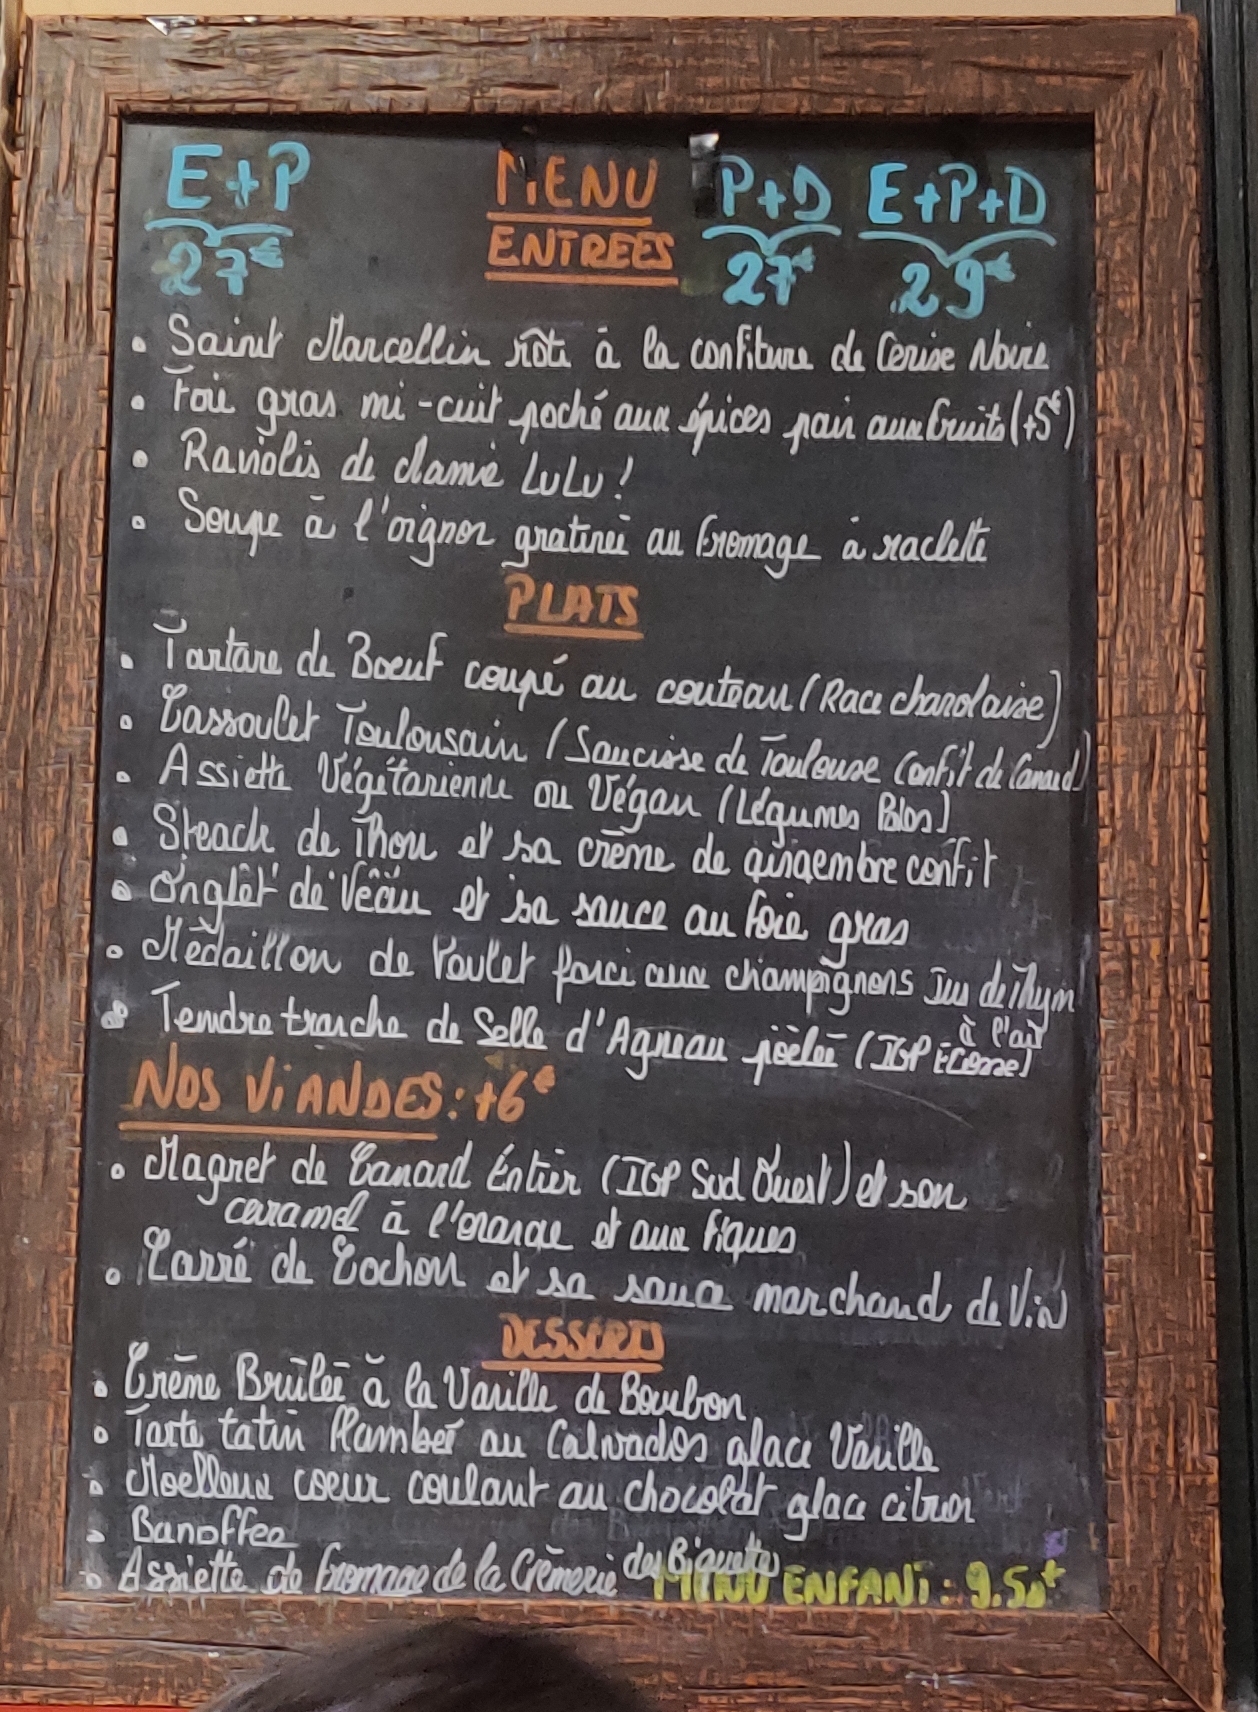 E+P MENU P+D E+P+D
27€ ENTREES 27€ 29€
• Saint Marcellin rôti à la confiture de Cerise Noire
• Foie gras mi-cuit poché aux épices pain aux fruits (+5€)
• Raviolis de dame LuLu !
• Soupe à l'oignon gratinée au fromage à raclette
PLATS
• Tartare de Boeuf coupé au couteau (Race charolaise)
• Cassoulet Toulousain (Saucisse de Toulouse Confit de Canard)
• Assiette Végétarienne ou Végan (Légumes Bios)
• Steack de Thon et sa crème de gingembre confit
• Onglet de Veau et sa sauce au foie gras
• Médaillon de Poulet farci aux champignons Jus de Thym
• Tendre tranche de Selle d'Agneau poêlée à l'ail (IGP Ecosse)
NOS ViANDES : +6€
• Magret de Canard Entier (IGP Sud Ouest) et son
caramel à l'orange et aux figues
• Carré de Cochon et sa sauce marchand de Vin
DESSERTS
• Crème Brûlée à la Vanille de Bourbon
• Tarte tatin flambée au Calvados glace Vanille
• Moelleux coeur coulant au chocolat glace citron
• Banoffee
• Assiette de fromage de la Crèmerie des Biquettes
MENU ENFANT : 9.50€